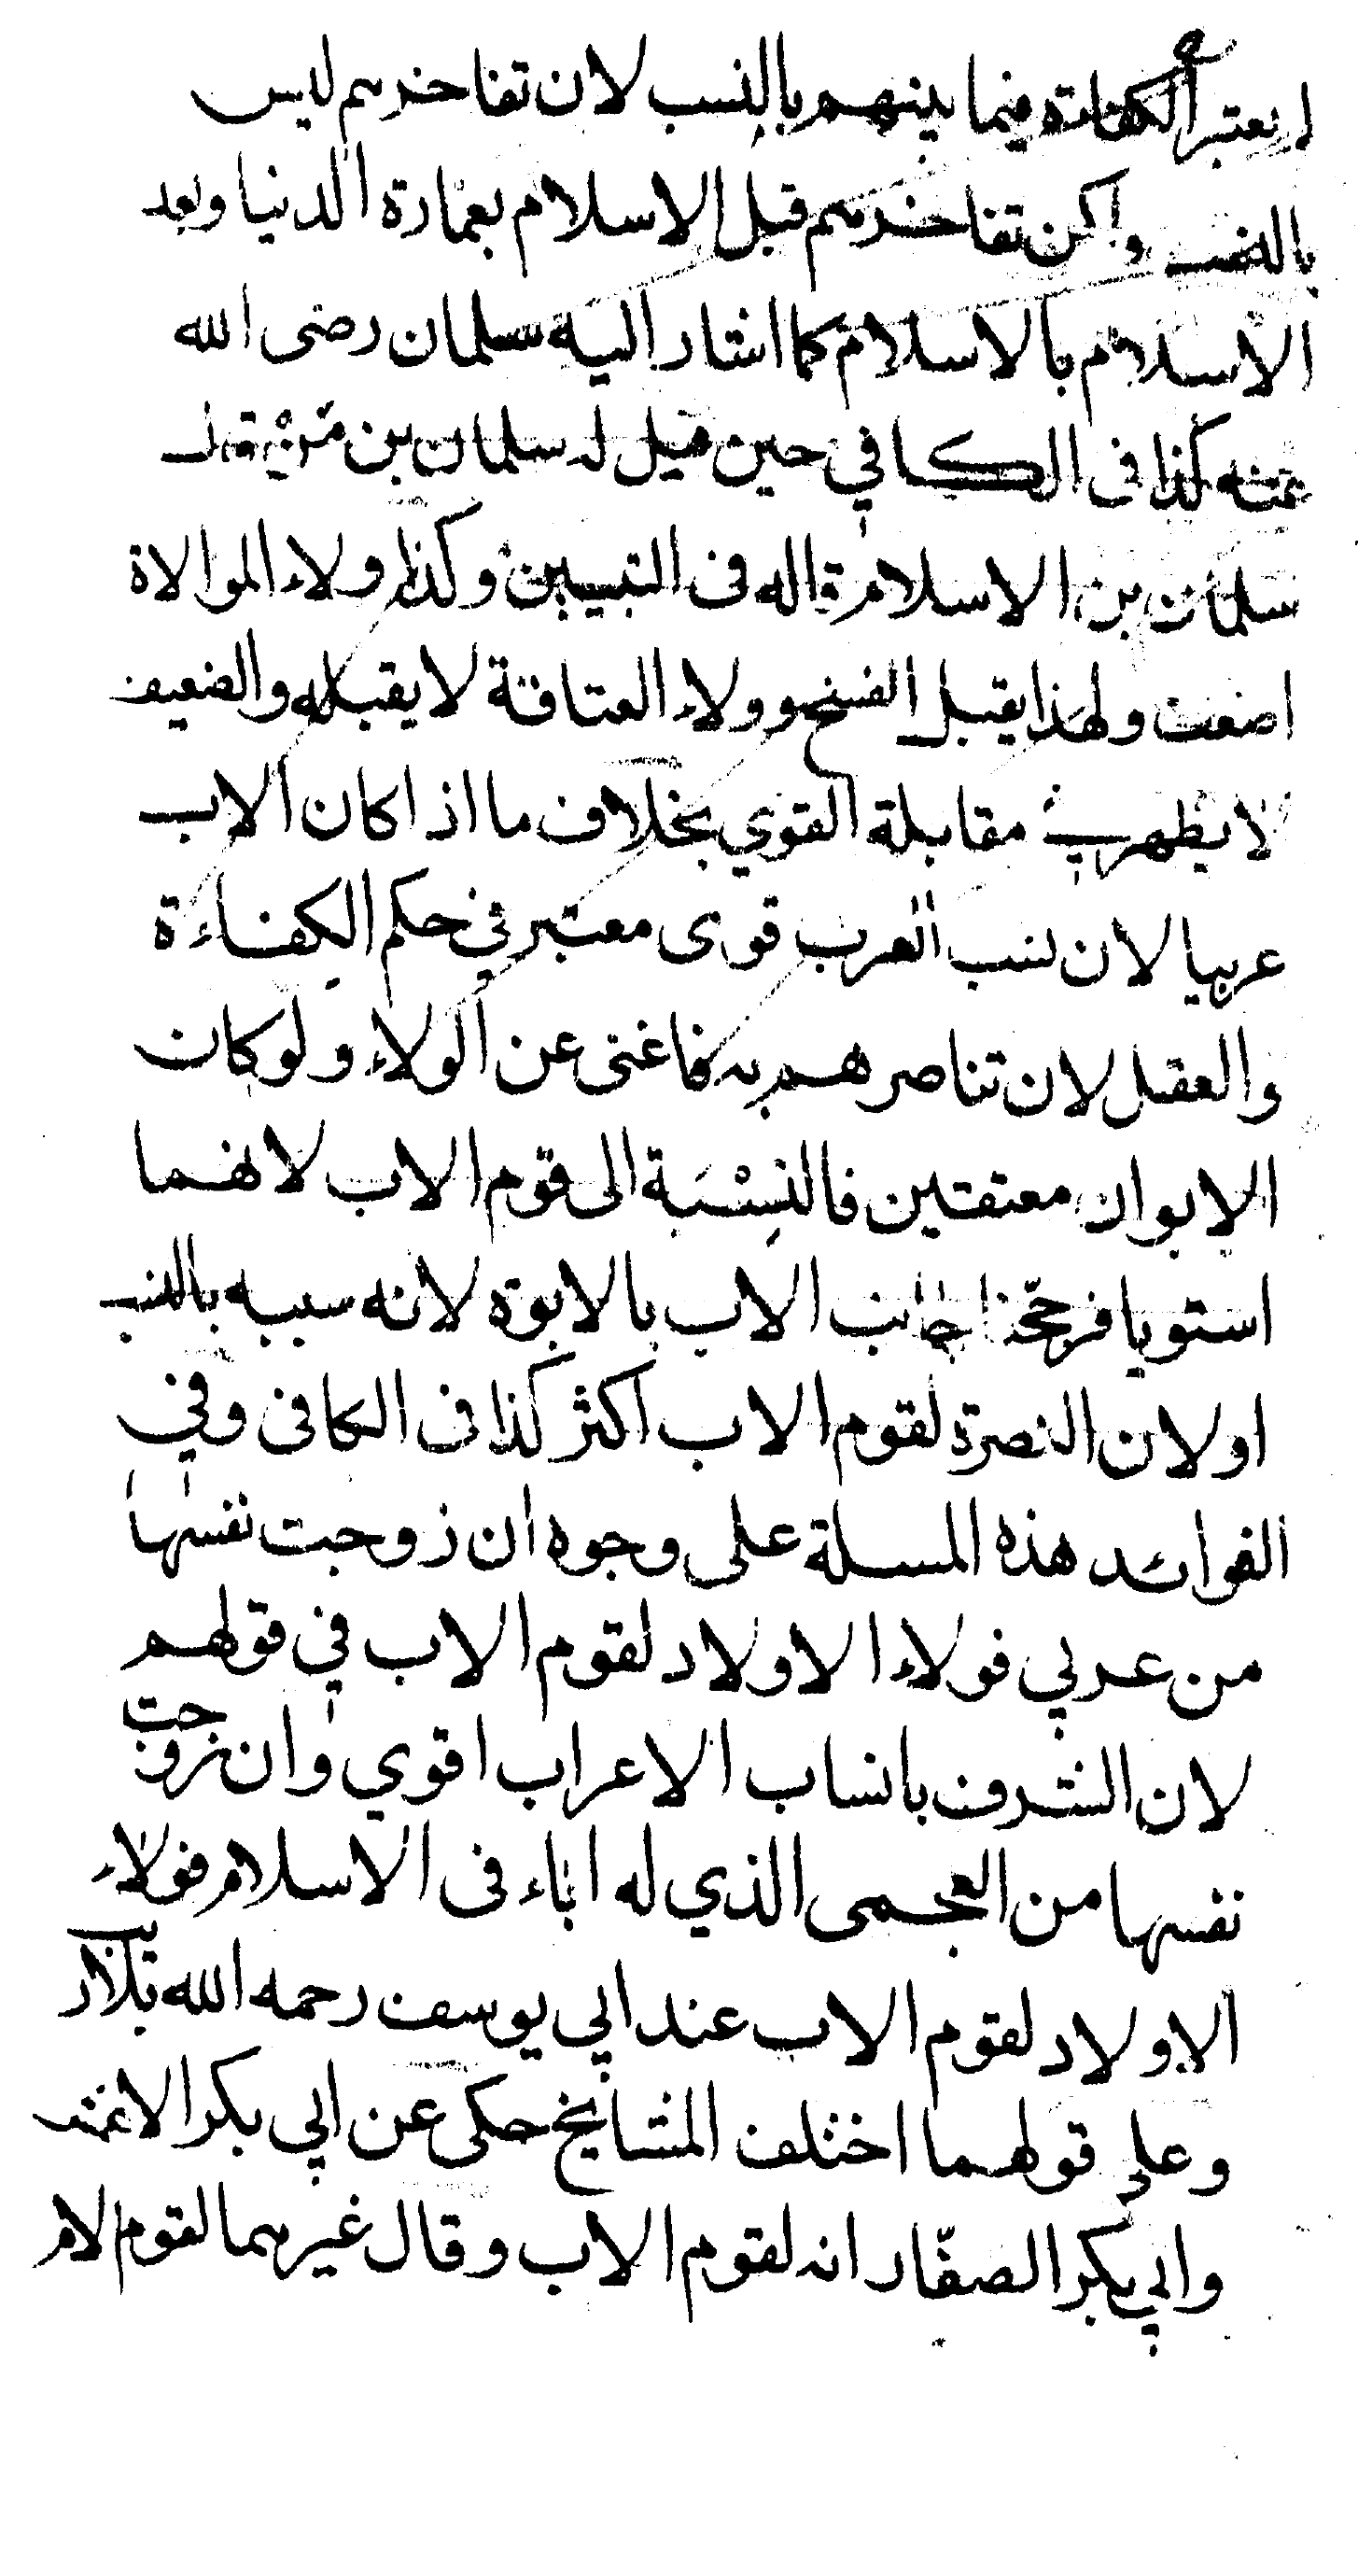 لم تعتبر الكفاءة فيما بينهم بالنسب لان تفاخرهم ليس
بالنسب ولكن تفاخرهم قبل الاسلام بعمارة الدنيا وبعد
الاسلام بالاسلام كما اشار اليه سلمان رضى الله
عنه كذا فى الكافي حين قيل له سلمان بن من قال
سلمان بن الاسلام قاله فى التبيين وكذا ولاء الموالاة
اضعف ولهذا يقبل الفسخ وولاء العتاقة لا يقبله والضعيف
لا يظهر في مقابلة القوي بخلاف ما اذا كان الاب
عربيا لان نسب العرب قوى معتبر في حكم الكفاءة
والعقل لان تناصرهم به فاغنى عن الولاء ولو كان
الابوان معتقين فالنسبة الى قوم الاب لانهما
استويا فرجحنا جانب الاب بالابوة لانه سببه بالنسب
او لان النصرة لقوم الاب اكثر كذا فى الكافى وفي
الفوائد هذه المسلة على وجوه ان زوجت نفسها
من عربي فولاء الاولاد لقوم الاب في قولهم
لان الشرف بانساب الاعراب اقوي وان زوجت
نفسها من العجمى الذي له اباء فى الاسلام فولاء
الاولاد لقوم الاب عند ابي يوسف رحمه الله بلا ريب
وعلى قولهما اختلف المشايخ حكى عن ابي بكر الاعمش
وابي بكر الصفّار انه لقوم الاب وقال غيرهما لقوم الام